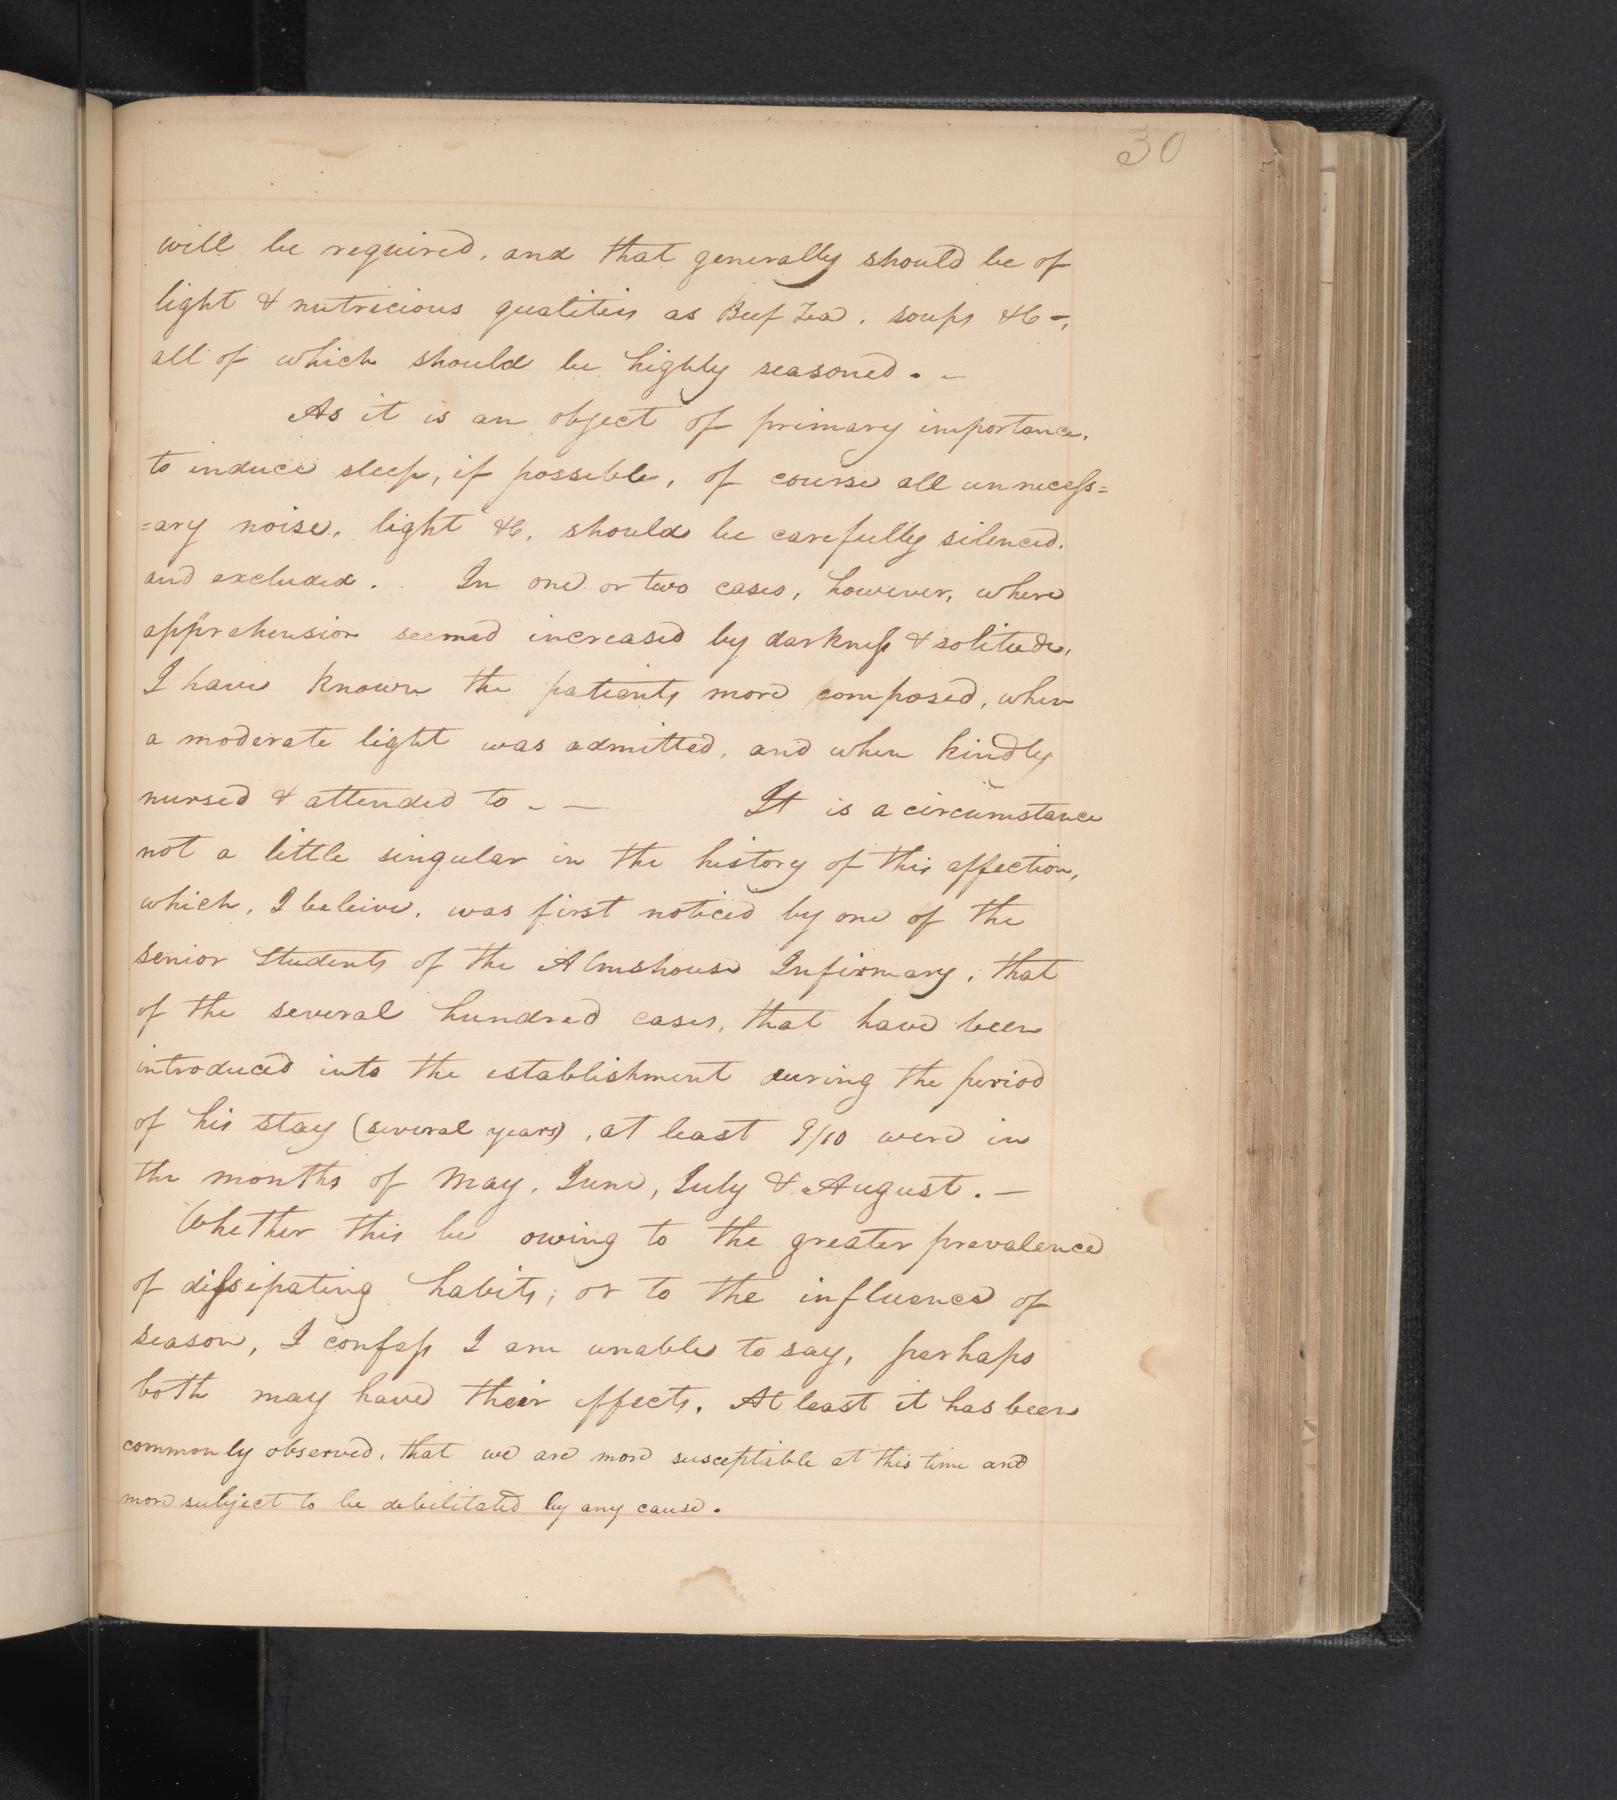 30
will be required, and that generally should be of
light & nutricious qualities as Beef Tea, soups &c -,
all of which should be highly seasoned. -
As it is an object of primary importance,
to induce sleep, if possible, of course all unnecess=
=ary noise, light &c, should be carefully silenced,
and excluded. In one or two cases, however, where
apprehension seemed increased by darkness & solitude,
I have known the patients more composed, when
a moderate light was admitted, and when kindly
nursed & attended to - — It is a circumstance
not a little singular in the history of this affection,
which, I beleive, was first noticed by one of the
senior Students of the Almshouse Infirmary, that
of the several hundred cases, that have been
introduced into the establishment during the period
of his stay (several years), at least 9/10 were in
the months of May, June, July & August. —
Whether this be owing to the greater prevalence
of dissipating habits, or to the influence of
season, I confess I am unable to say, perhaps
both may have their effects. At least it has been
commonly observed, that we are more susceptible at this time and
more subject to be debilitated by any cause.